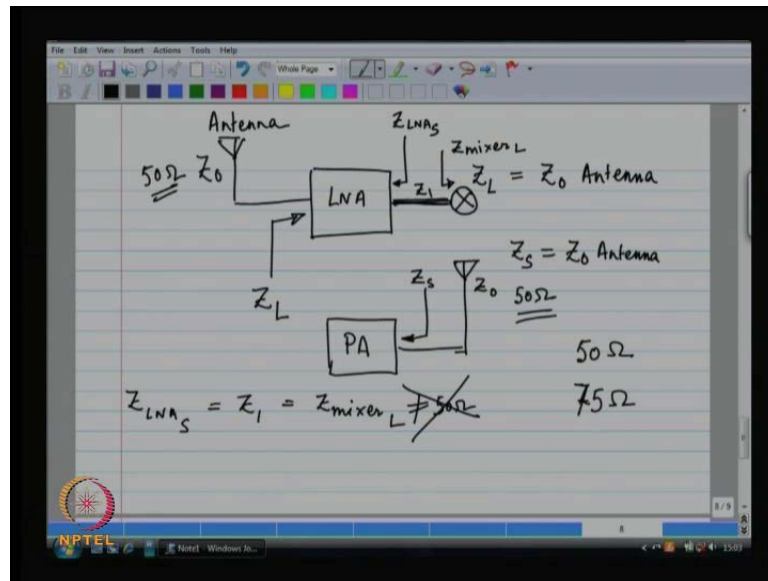 File Edit View Insert Actions Tools Help
Whole Page
B I
Antenna
Z_LNA_S
Z_mixer_L
50Ω Z_0
LNA
Z_1
Z_L = Z_0 Antenna
Z_L
Z_S = Z_0 Antenna
Z_S
Z_0
50Ω
PA
50Ω
Z_LNA_S = Z_1 = Z_mixer_L ≠ 50Ω
75Ω
8/9
8
NPTEL
Note1 - Windows Jo...
15:03